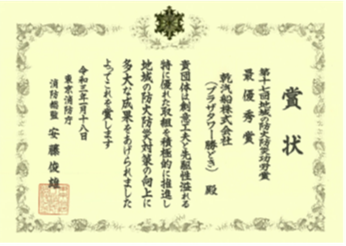 賞状
第十七回地域の防火防災功労賞
最優秀賞
乾汽船株式会社
（プラザタワー勝どき）殿
貴団体は創意工夫と先駆性溢れる
特に優れた取組を積極的に推進し
地域の防火防災対策の向上に
多大な成果をあげられました
よってこれを賞します
令和三年二月十八日
東京消防庁
消防総監 安藤俊雄